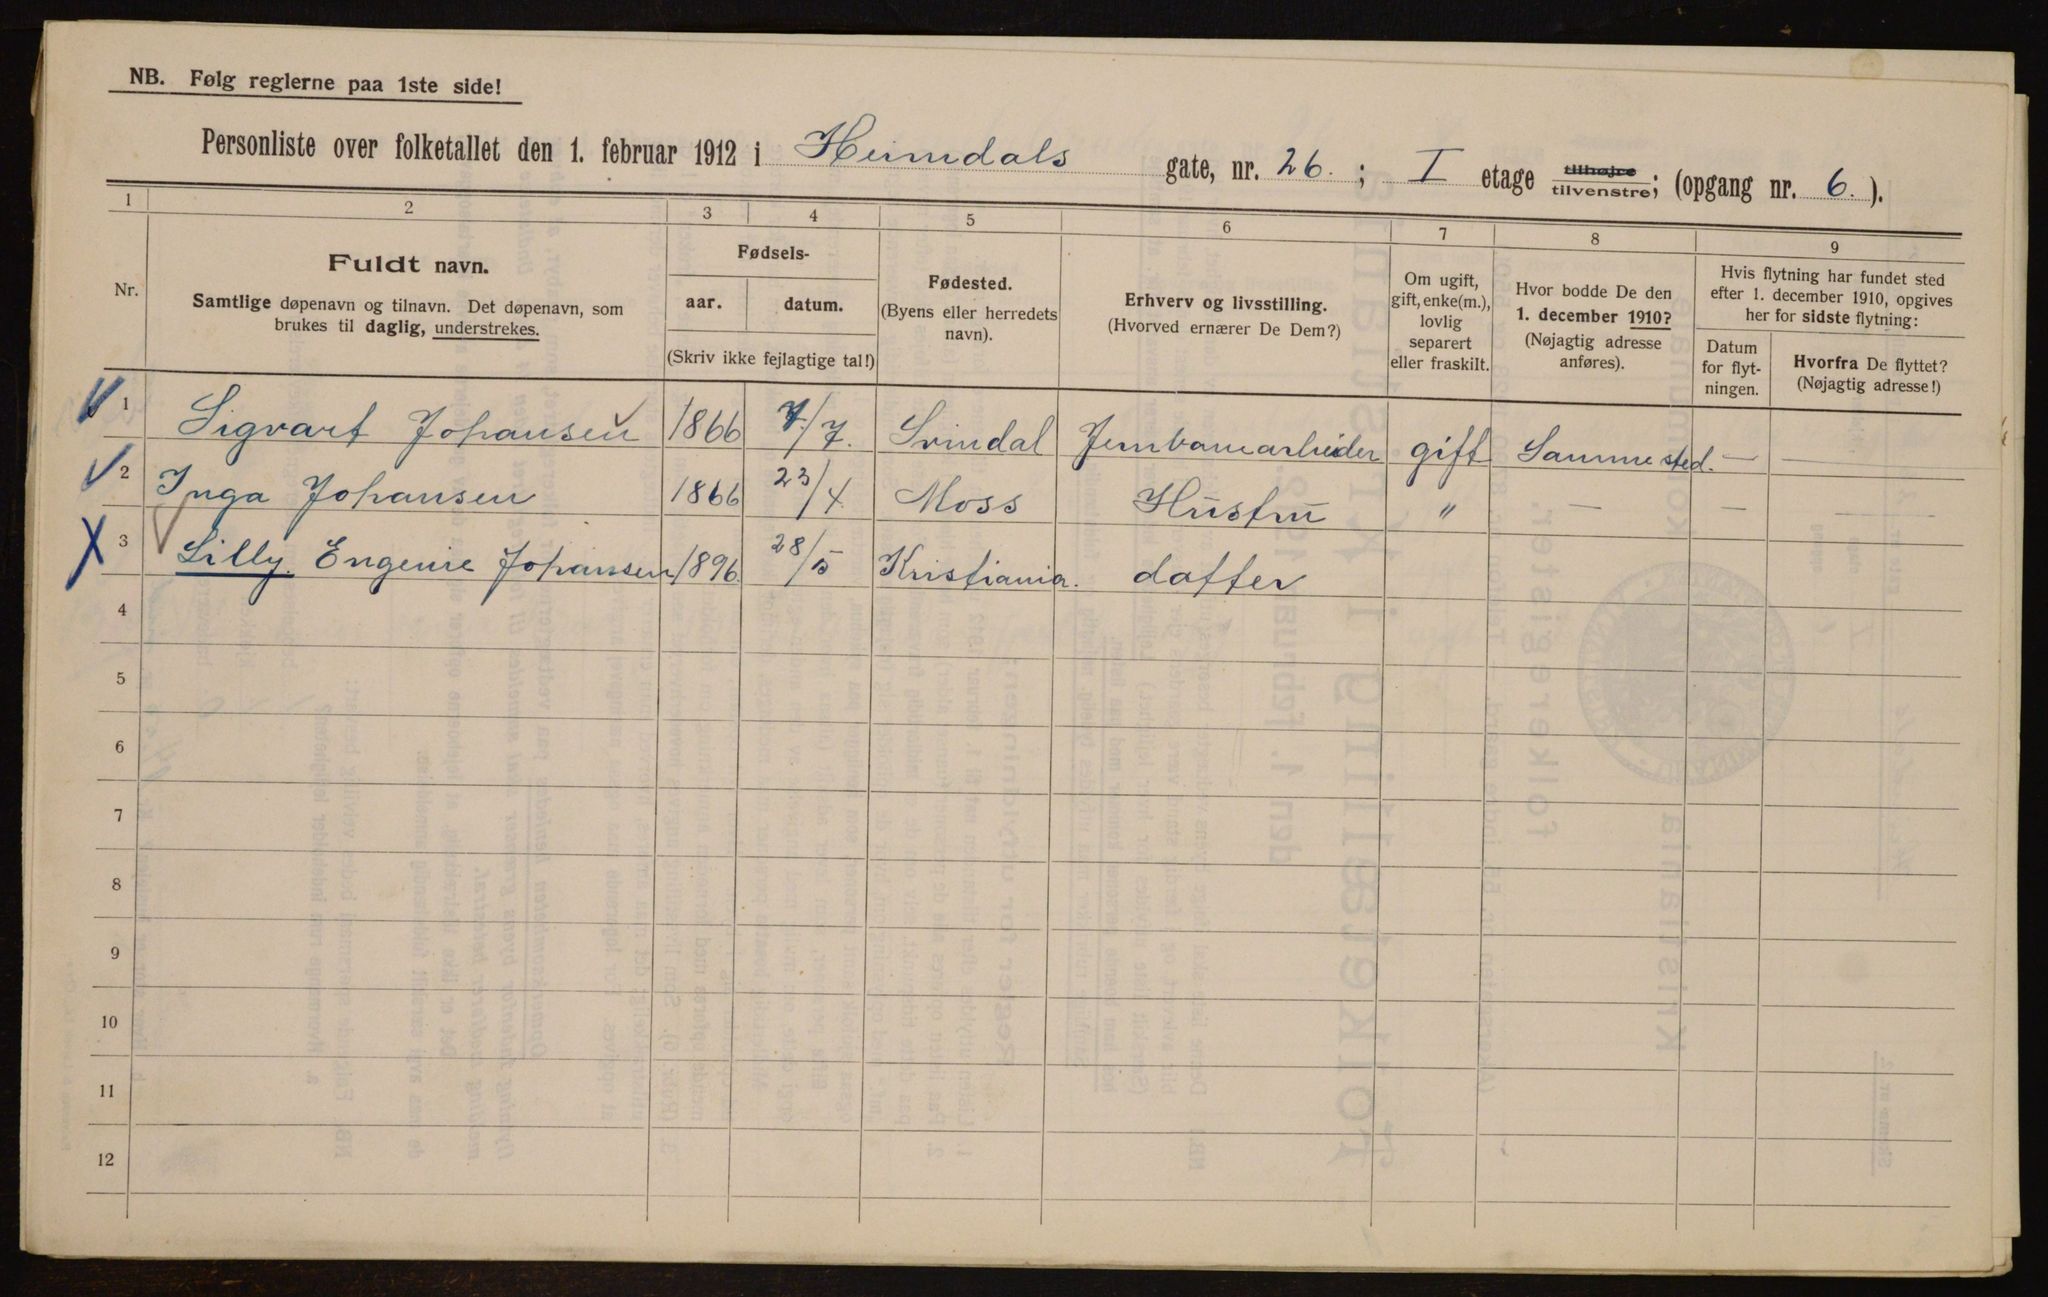 NB. Følg reglerne paa 1ste side!
Personliste over folketallet den 1. februar 1912 i Heimdals gate, nr. 26. ; I etage tilhøjre tilvenstre; (opgang nr. 6. ).
1 2 3 4 5 6 7 8 9
Nr.
Fuldt navn.
Samtlige døpenavn og tilnavn. Det døpenavn, som
brukes til daglig, understrekes.
Fødsels-
aar. datum.
(Skriv ikke fejlagtige tal!)
Fødested.
(Byens eller herredets
navn).
Erhverv og livsstilling.
(Hvorved ernærer De Dem?)
Om ugift,
gift, enke(m.),
lovlig
separert
eller fraskilt.
Hvor bodde De den
1. december 1910?
(Nøjagtig adresse
anføres).
Hvis flytning har fundet sted
efter 1. december 1910, opgives
her for sidste flytning:
Datum
for flyt-
ningen.
Hvorfra De flyttet?
(Nøjagtig adresse!)
1 Sigvart Johansen 1866 7/7. Svindal Jernbanearbeider gift Samme sted. — —
2 Inga Johansen 1866 23/4 Moss Hustru " — — —
3 Lilly Engenie Johansen 1896 28/5 Kristiania. datter
4
5
6
7
8
9
10
11
12